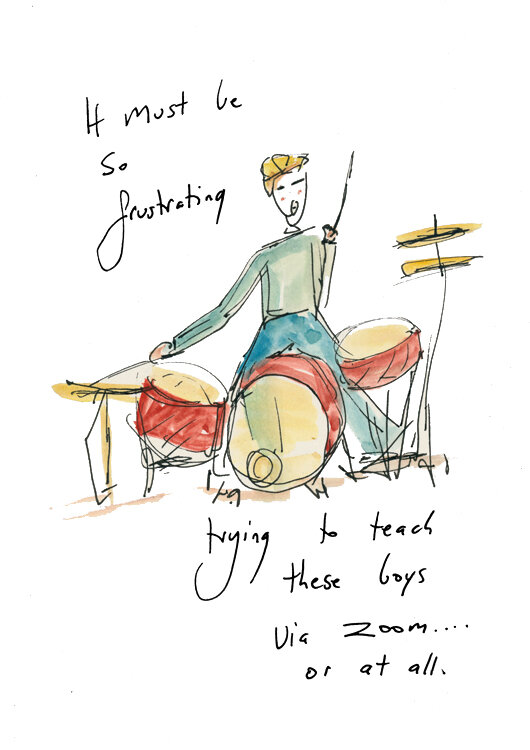 It must be
so
frustrating
trying to teach
these boys
via Zoom....
or at all.